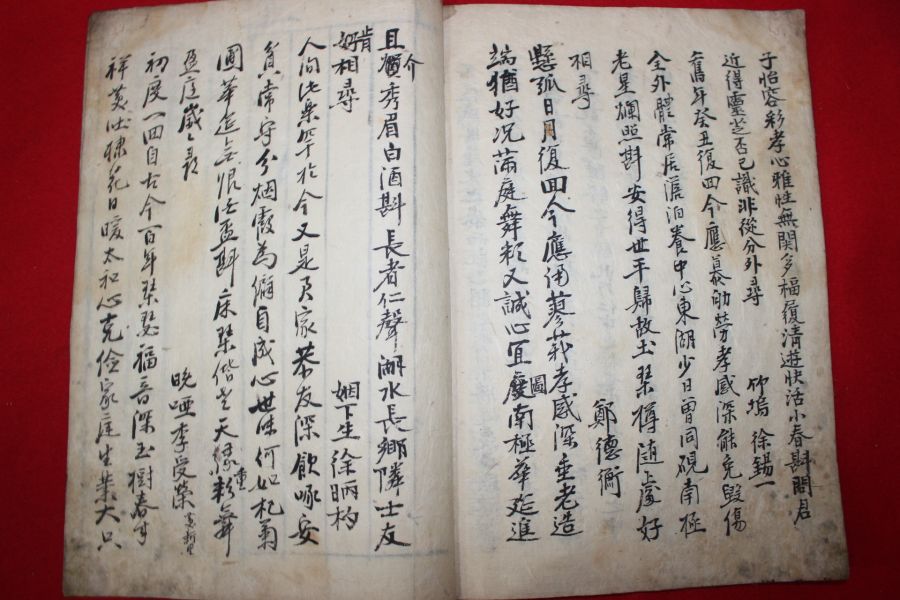 子怡容彩孝心雅性無関多福履清遊狀活小春斟問君
近得靈芝否已識非從分外尋
竹塢 徐錫一
舊年癸丑復回今應慕劬勞孝感深能免毀傷
全外體常居澹泊養中心東湖少日曾同硯南極
老星爛照斟安得世平歸故土琹樽隨處好
相尋
鄭德衡
懸弧日月復回今應俑蓼莪孝感深垂老造
端猶好況滿庭舞彩又誠心宜圖南極華筵進
且介秀眉白酒斟長者仁聲湖水長鄉隣士友
肯好相尋
姻下生徐昞杓
人间此樂罕於今又是君家恭友深飲啄安
貧常守分烟霞為癖自成心世味何如杞菊
圃華筵無恨法盃斟床琹偕老天緣重彩舞
盈庭歲歲尋
晩啞李受榮
初度一回自古今百年琹瑟福音深玉樹春
祥荑棣花日暖太和心克儉家庭生業大只